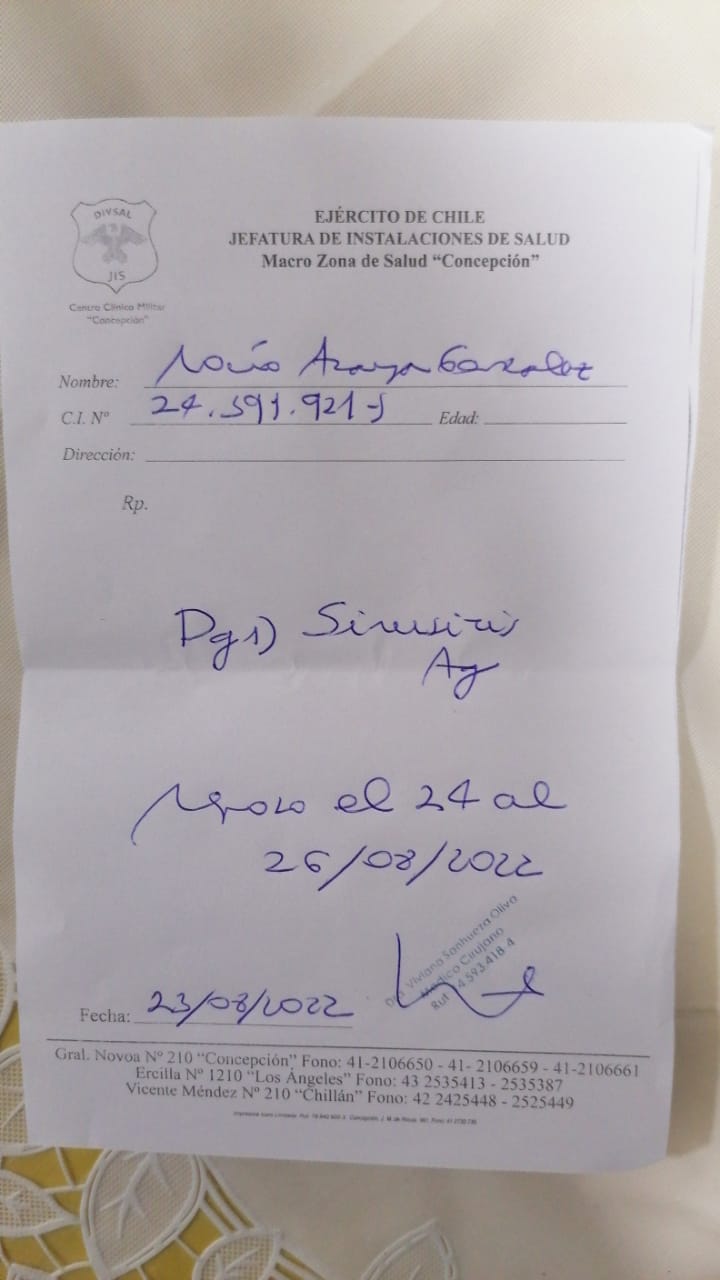 DIVSAL
JIS
Centro Clínico Militar
"Concepción"
EJÉRCITO DE CHILE
JEFATURA DE INSTALACIONES DE SALUD
Macro Zona de Salud "Concepción"
Nombre: Rocío Araya González
C.I. Nº 24.591.921-5 Edad:
Dirección:
Rp.
Dg1) Sinusitis
Ag
Reposo el 24 al
26/08/2022
Viviana Sanhueza Olivo
Médico Cirujano
Fecha: 23/08/2022
Gral. Novoa Nº 210 "Concepción" Fono: 41-2106650 - 41- 2106659 - 41-2106661
Ercilla Nº 1210 "Los Ángeles" Fono: 43 2535413 - 2535387
Vicente Méndez Nº 210 "Chillán" Fono: 42 2425448 - 2525449